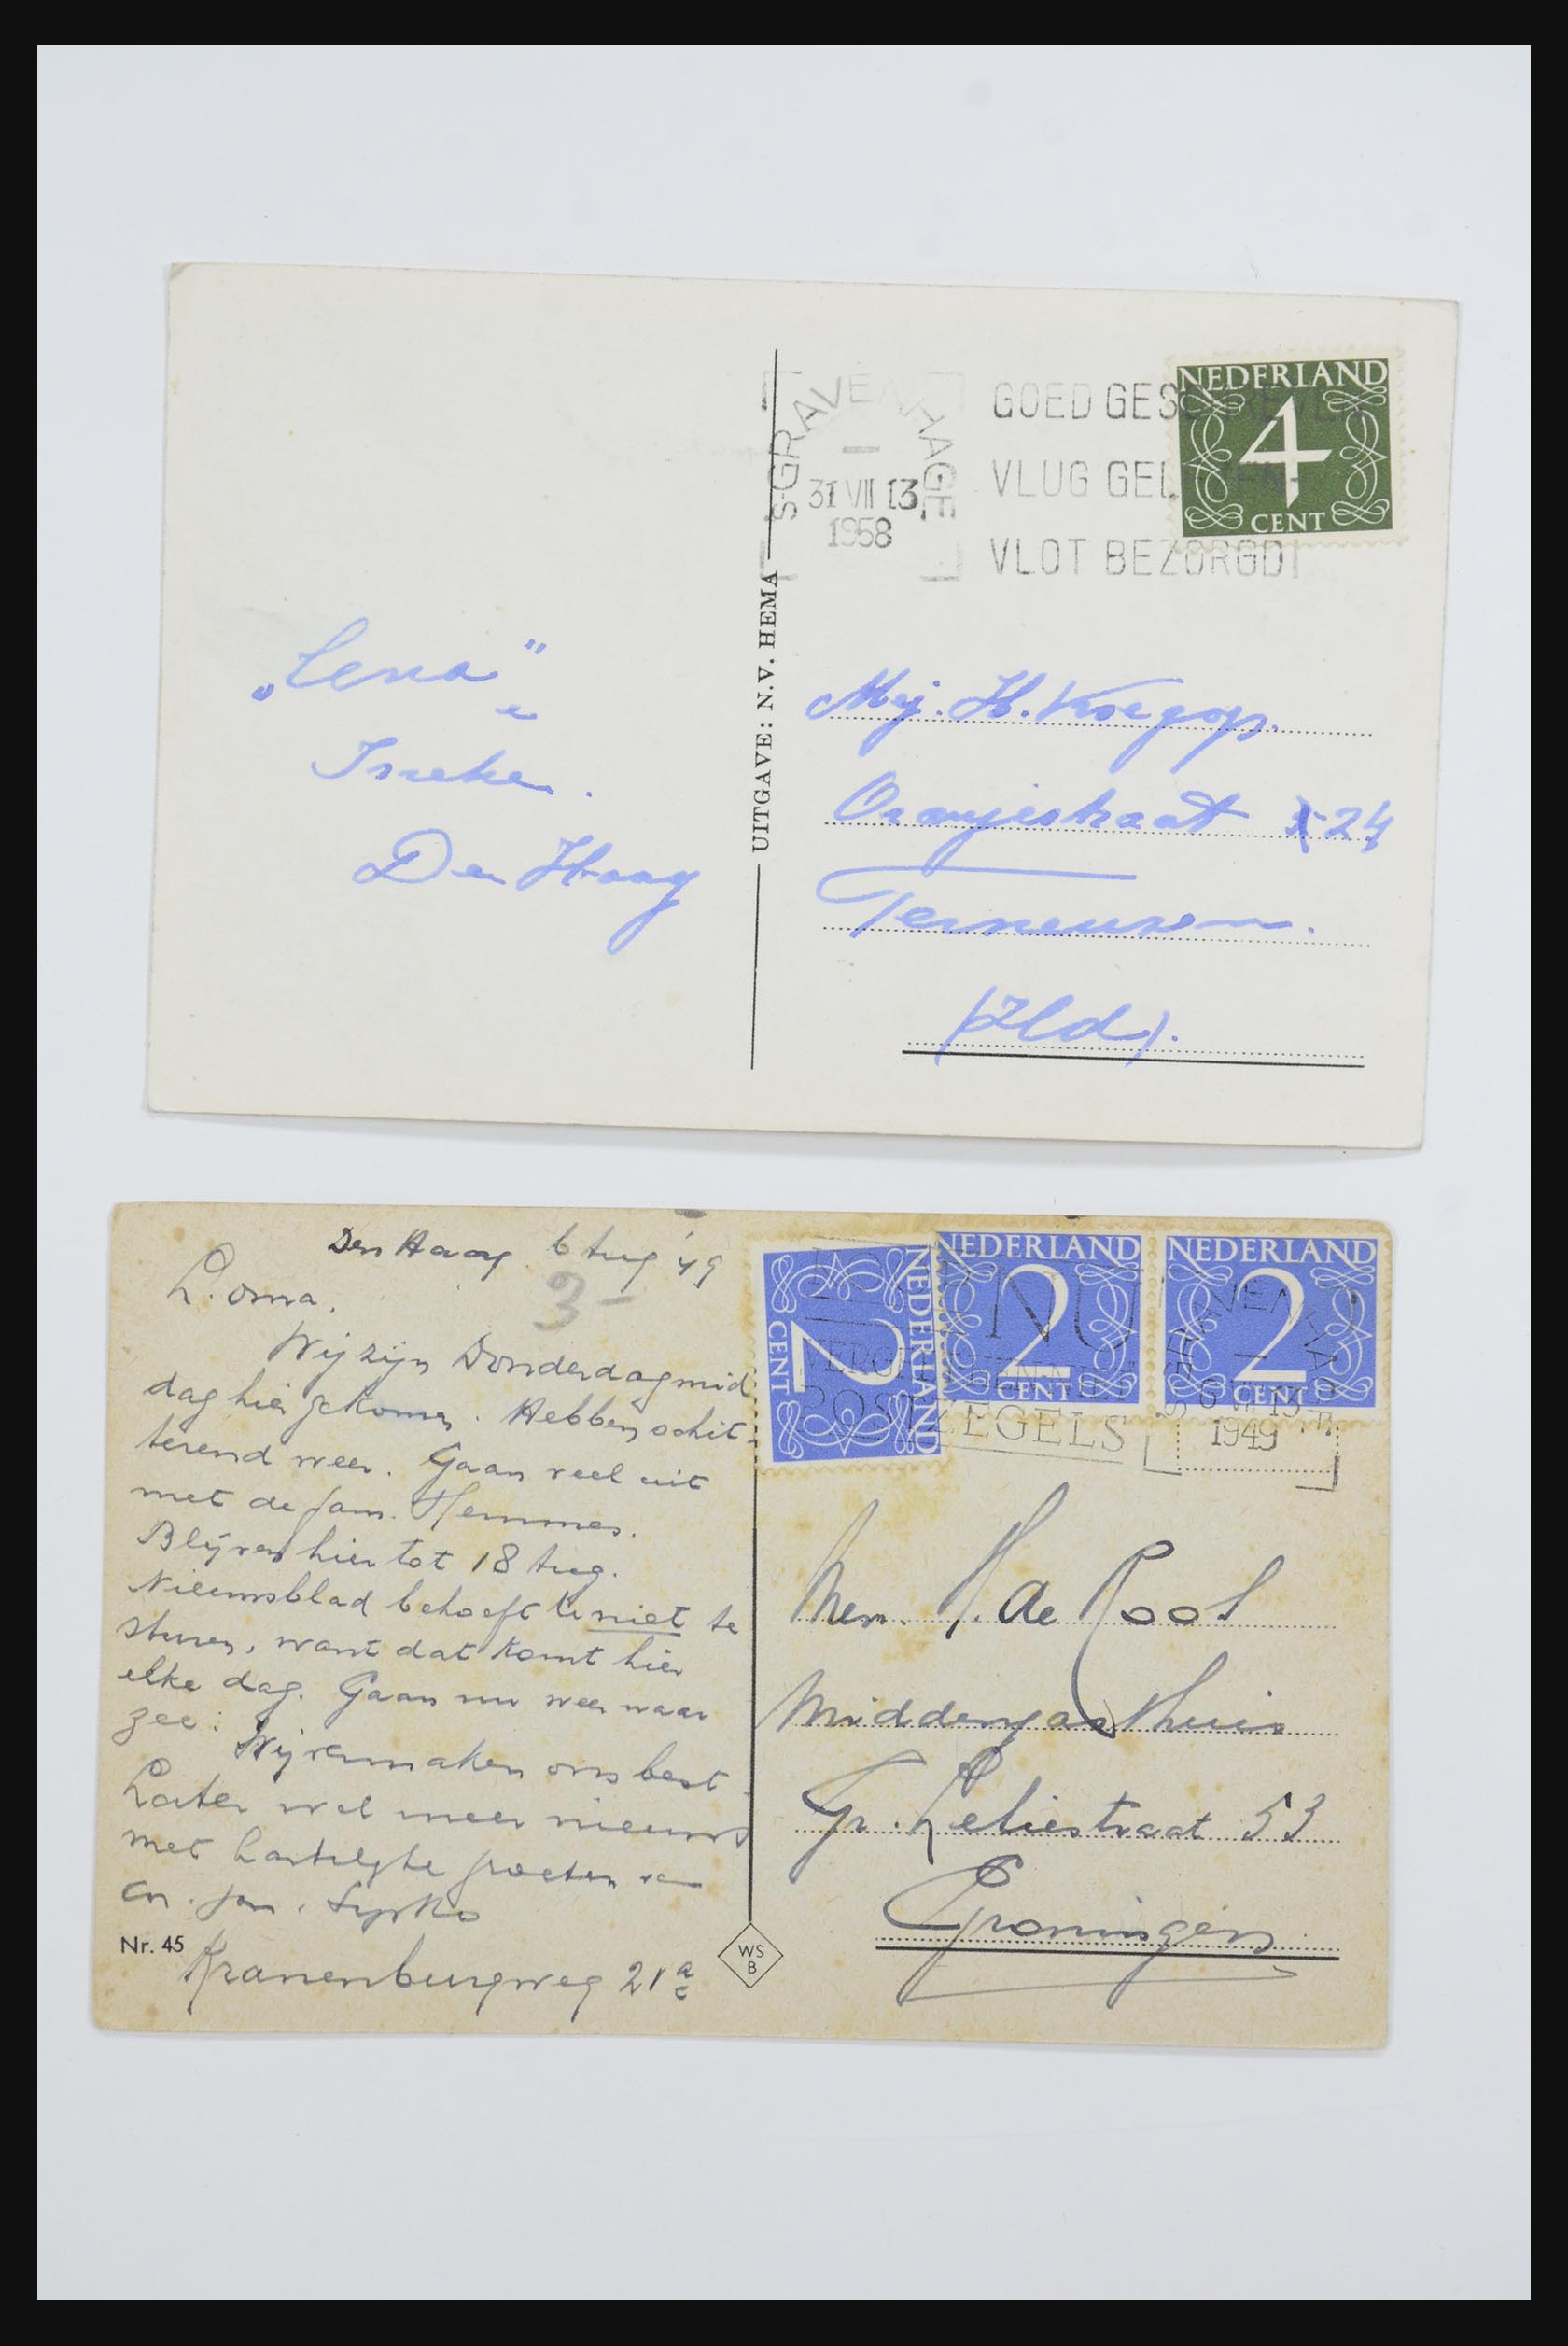 'S GRAVENHAGE
31 VII 13
1958
GOED GESCHREVEN-
VLUG GELEZEN-
VLOT BEZORGD!
NEDERLAND
4
CENT
„Lena”
Den Haag
UITGAVE: N.V. HEMA
Mej. H.
Oranjestraat 24
Terneuzen.
(Zld).
Den Haag 6 Aug '49
3-
L. oma.
Wij zijn Donderdagmid
dag hier gekomen. Hebben schit-
terend weer. Gaan veel uit
met de fam. Hemmes.
Blijven hier tot 18 Aug.
Nieuwsblad behoeft U niet te
sturen, want dat komt hier
elke dag. Gaan nu weer naar
zee. Wij vermaken ons best.
Later wel meer nieuws
met hartelijke groeten van
Jan.
Nr. 45
Kranenburgweg 21a
WS
B
NEDERLAND
2
CENT
NEDERLAND
2
CENT
NEDERLAND
2
CENT
NU
POSTZEGELS
'S GRAVENHAGE
1949
Mevr. H. de Rool
Middengasthuis
Gr. Leliestraat 53
Groningen